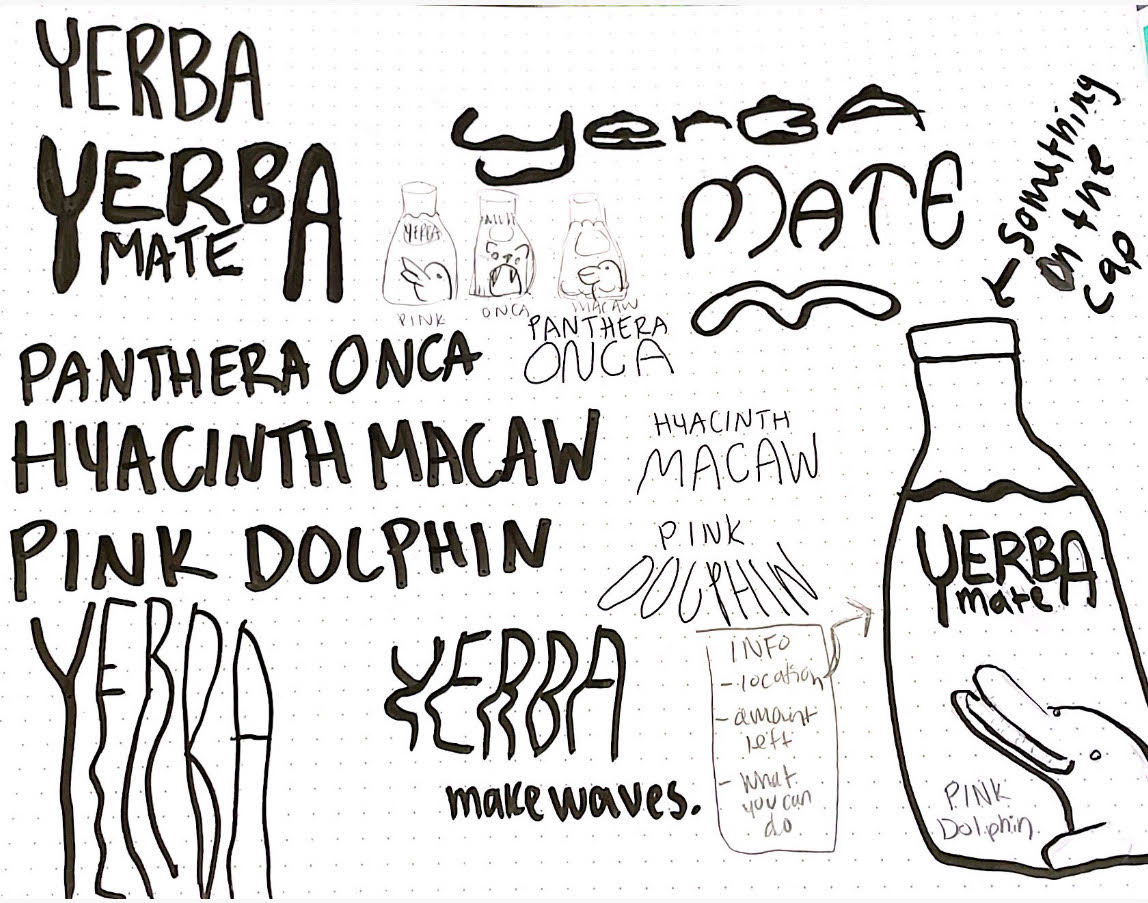 YERBA
YERBA
MATE
yerBA
MATE
Somuthing
On the
cap
YERBA
PINK
ONCA
MACAW
PANTHERA ONCA
PANTHERA
ONCA
HYACINTH MACAW
HYACINTH
MACAW
PINK DOLPHIN
PINK
DOLPHIN
YERBA
YERBA
make waves.
INFO
- location
- amount
left
- What
you can
do
YERBA
mate
PINK
Dolphin